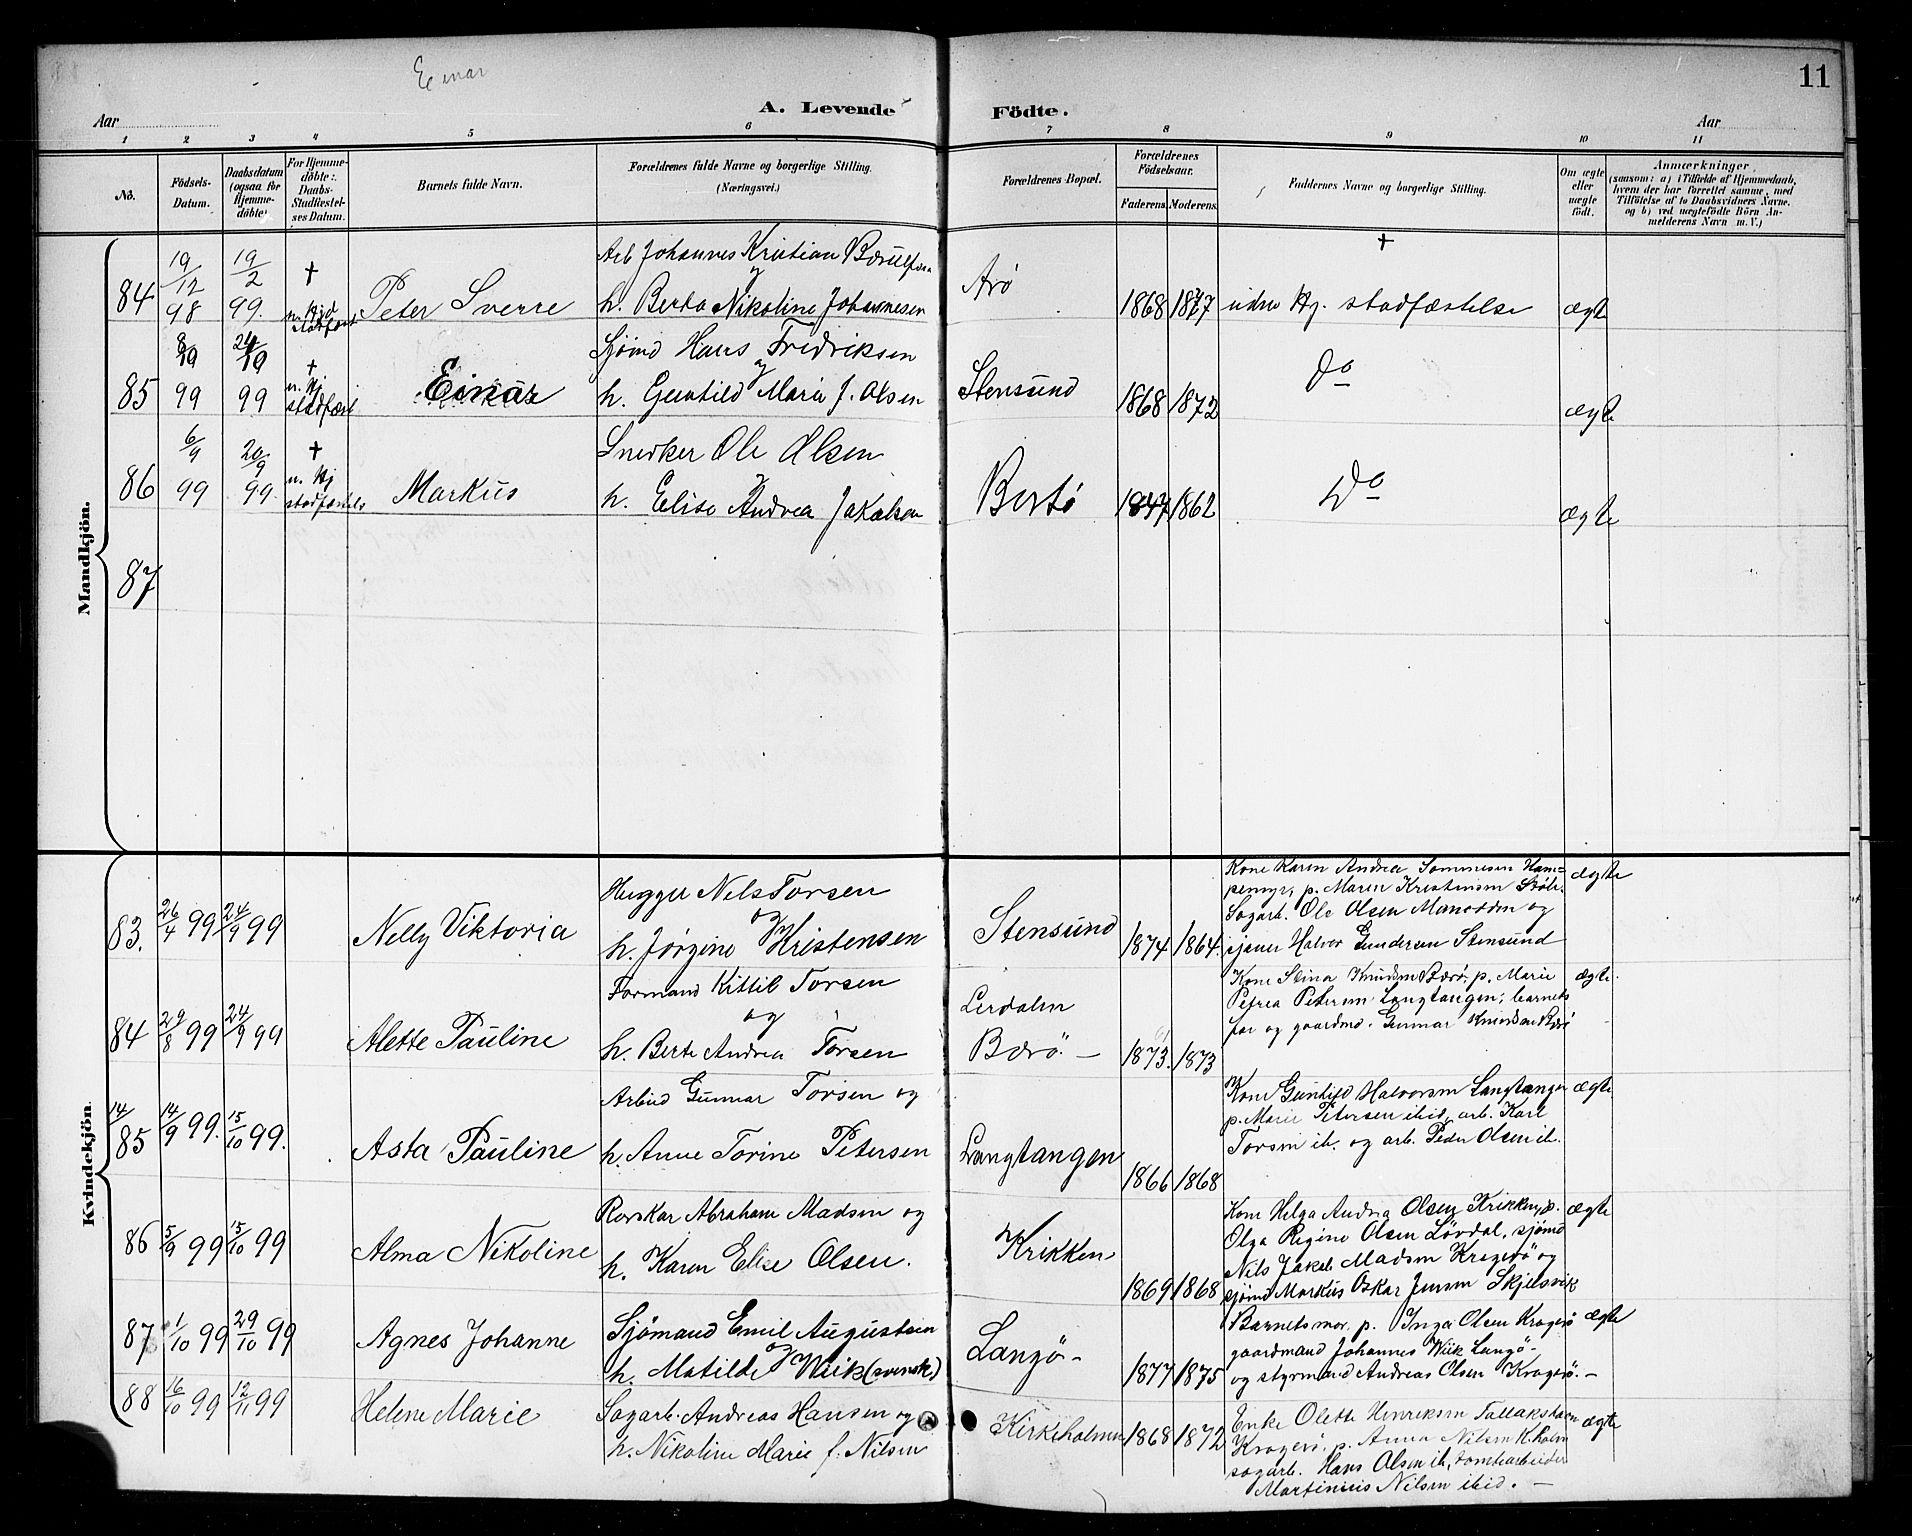 Einar
11
A. Levende Födte.
Aar
Aar
1 2 3 4 5 6 7 8 9 10 11
No.
Födsels-
Datum.
Daabsdatum
(ogsaa for
Hjemme-
döbte.)
For Hjemme-
döbte:
Daabs-
Stadfæstel-
ses Datum.
Barnets fulde Navn.
Forældrenes fulde Navne og borgerlige Stilling.
(Næringsvei.)
Forældrenes Bopæl.
Forældrenes
Födselsaar.
Faderens. Moderens.
Faddernes Navne og borgerlige Stilling.
Om ægte
eller
uægte
födt.
Anmærkninger,
(saasom: a) i Tilfælde af Hjemmedaab,
hvem der har forrettet samme, med
Tilföielse af to Daabsvidners Navne.
og b) ved uægtefödte Börn An-
melderens Navn m. V.)
Mandkjön.
84
19/12 98
19/2 99.
†
Peter Sverre
Arb Johannes Kristian
og
h. Berta Nikoline Johannesen
Arö
1868 1877
†
uden Kj. stadfæstelse
ægte
85
8/10 99
24/10 99
†
u. Kj
stadfæst
Einar
Sjömd Hans Fredriksen
og
h. Guntild Maria J. Olsen
Stensund
1868 1872
Do
ægte
86
6/9 99
20/9 99
†
u. Kj
stadfæstels
Markus
Snedker Ole Olsen
og
h. Elise Andrea Jakobsen
Bertö
1847 1862
Do
ægte
87
Kvindekjön.
83.
26/4 99
24/9 99
Nelly Viktoria
Hugger Nels Torsen
og
h. Jörgine Kristensen
Stensund
1874 1864.
Kone Karen Andrea Sammesen Ham-
penmyr, p. Maren Kristensen
Sagarb. Ole Olsen og
sjauer Halvor Gundersen Stensund
ægte
84
29/8 99
24/9 99
Alette Pauline
Formand Kittil Torsen
og
h. Berte Andrea Torsen
Lerdalen
Bærö. —
1873. 1873
Kone Stina Knudsen Bærö, p. Marie
Petrea Petersen Langtangen, barnets
far og gaardmd. Gunnar Knudsen Bærö
ægte
14/
85
14/9 99.
15/10 99.
Asta Pauline
Arbeid Gunnar Torsen og
h. Anne Torine Petersen
Langtangen
1866 1868
Kone Gunhild Halvorsen Langtangen
p. Marie Petersen ibid, arb. Karl
Torsen ib. og arb. Peder Olsen ib.
ægte
86
5/9 99
15/10 99
Alma Nikoline
Revskar Abraham Madsen og
h. Karen Elise Olsen.
Krikken
1869 1868
Kone Helga Andrea Olsen Krikken, p.
Olga Regine Olsen Lövdal, sjömd
Nils Jakob Madsen Kragerö og
sjömd Markus Oskar Jensen Skjelsvik
ægte
87
1/10 99
29/10 99
Agnes Johanne
Sjömand Emil Augustsen
og
h. Matilde Wiik (svensk)
Langö -
1877 1875
Barnets mor, p. Inga Olsen Kragerö
gaardmand Johannes Wiik Langö -
og styrmand Andreas Olsen Kragerö. -
ægte
88
16/10 99
12/11 99
Helene Marie
Sagarb. Andreas Hansen og
h. Nikoline Marie f. Nilsen
Kirkeholmen
1868 1872
Enke Olette Henriksen Tallakshavn
Kragerö, p. Anna Nilsen K.holm
sagarb. Hans Olsen ib, tomtearbeider
Martinius Nilsen ibid. —
ægte